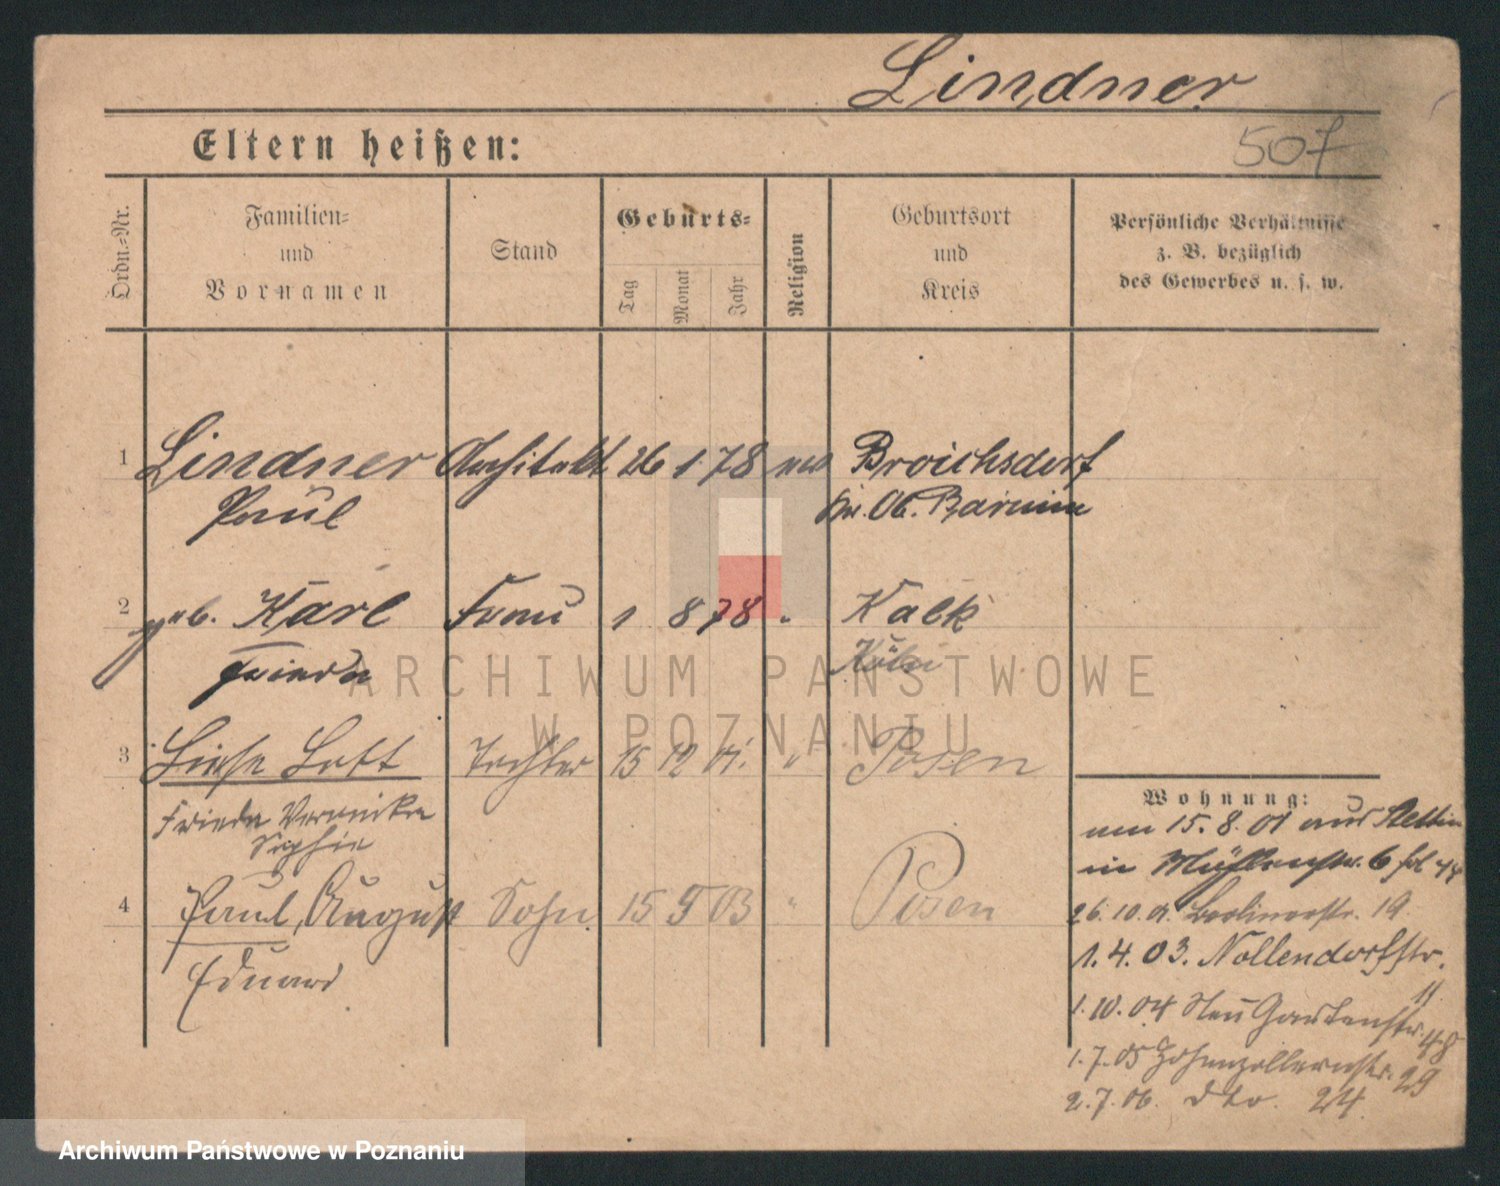 Lindner
Eltern heißen:
507
Ordn.-Nr.
Familien-
und
Vornamen
Stand
Geburts-
Tag
Monat
Jahr
Religion
Geburtsort
und
Kreis
Persönliche Verhältnisse
z. B. bezüglich
des Gewerbes u. s. w.
1 Lindner Architekt 26 1 78 ev Broichsdorf
Paul Kr. Ob. Barnim
2 geb. Karl Frau 1 8 78 " Kalk
Frieda Köln
ARCHIWUM PAŃSTWOWE
W POZNANIU
3 Liese Lott Tochter 15 12 01. " Posen
Frieda Veronika
Sophie
4 Paul, August Sohn 15 9 03 " Posen
Eduard
Wohnung:
um 15. 8. 01 aus Stettin
in Mühlenstr. 6
26. 10. 01. Berlinerstr. 19
1. 4. 03. Nollendorfstr.
11
1. 10. 04 Neu Gartenstr. 48
1. 7. 05 Hohenzollernstr. 29
2. 7. 06. dto. 24
Archiwum Państwowe w Poznaniu